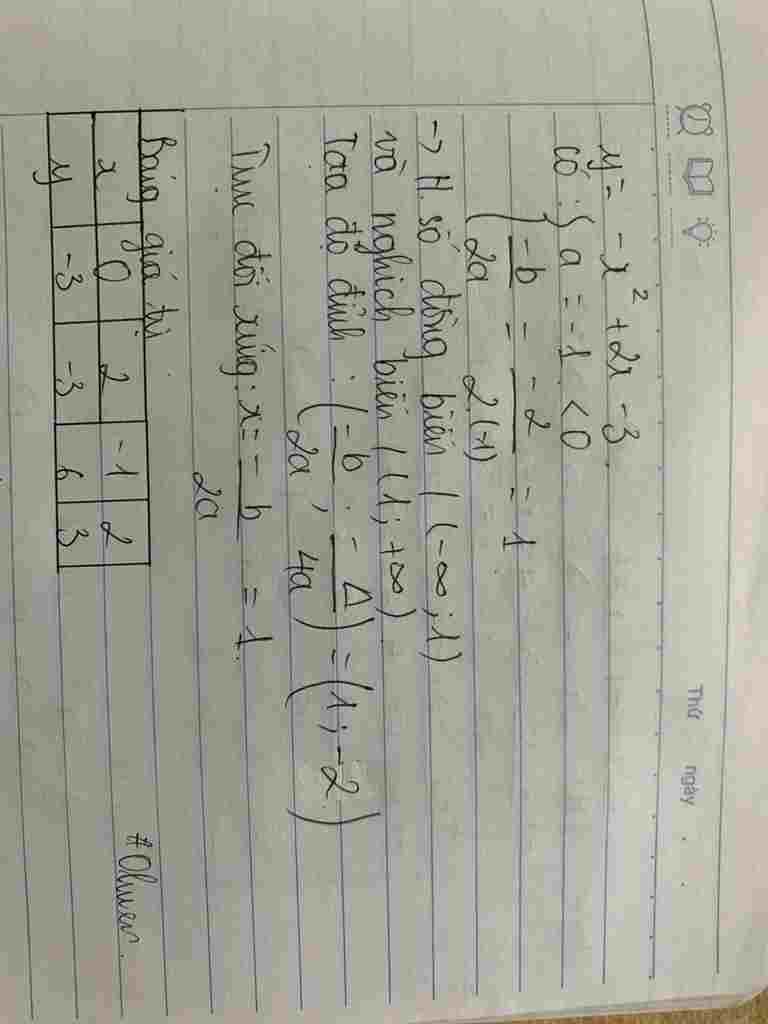 Thứ ngày . .
y = -x² + 2x - 3
có : { a = -1 < 0
-b/2a = -2/2.(-1) = 1
-> H. số đồng biến / (-∞ ; 1)
và nghịch biến / (1; +∞)
Tọa độ đỉnh : (-b/2a ; -Δ/4a) = (1 ; -2)
Trục đối xứng : x = -b/2a = 1.
Bảng giá trị
x 0 2 -1 2
y -3 -3 6 3
#Oliver.